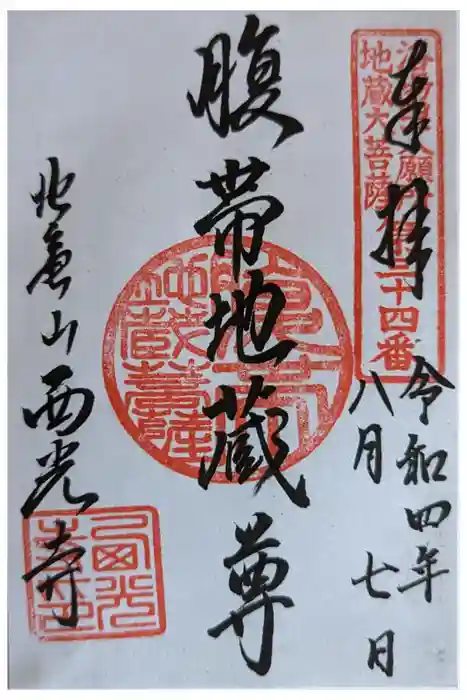 奉拝
地蔵大菩薩
第三十四番
令和四年
八月七日
腹帯地蔵尊
地蔵菩薩
山西光寺
西光寺